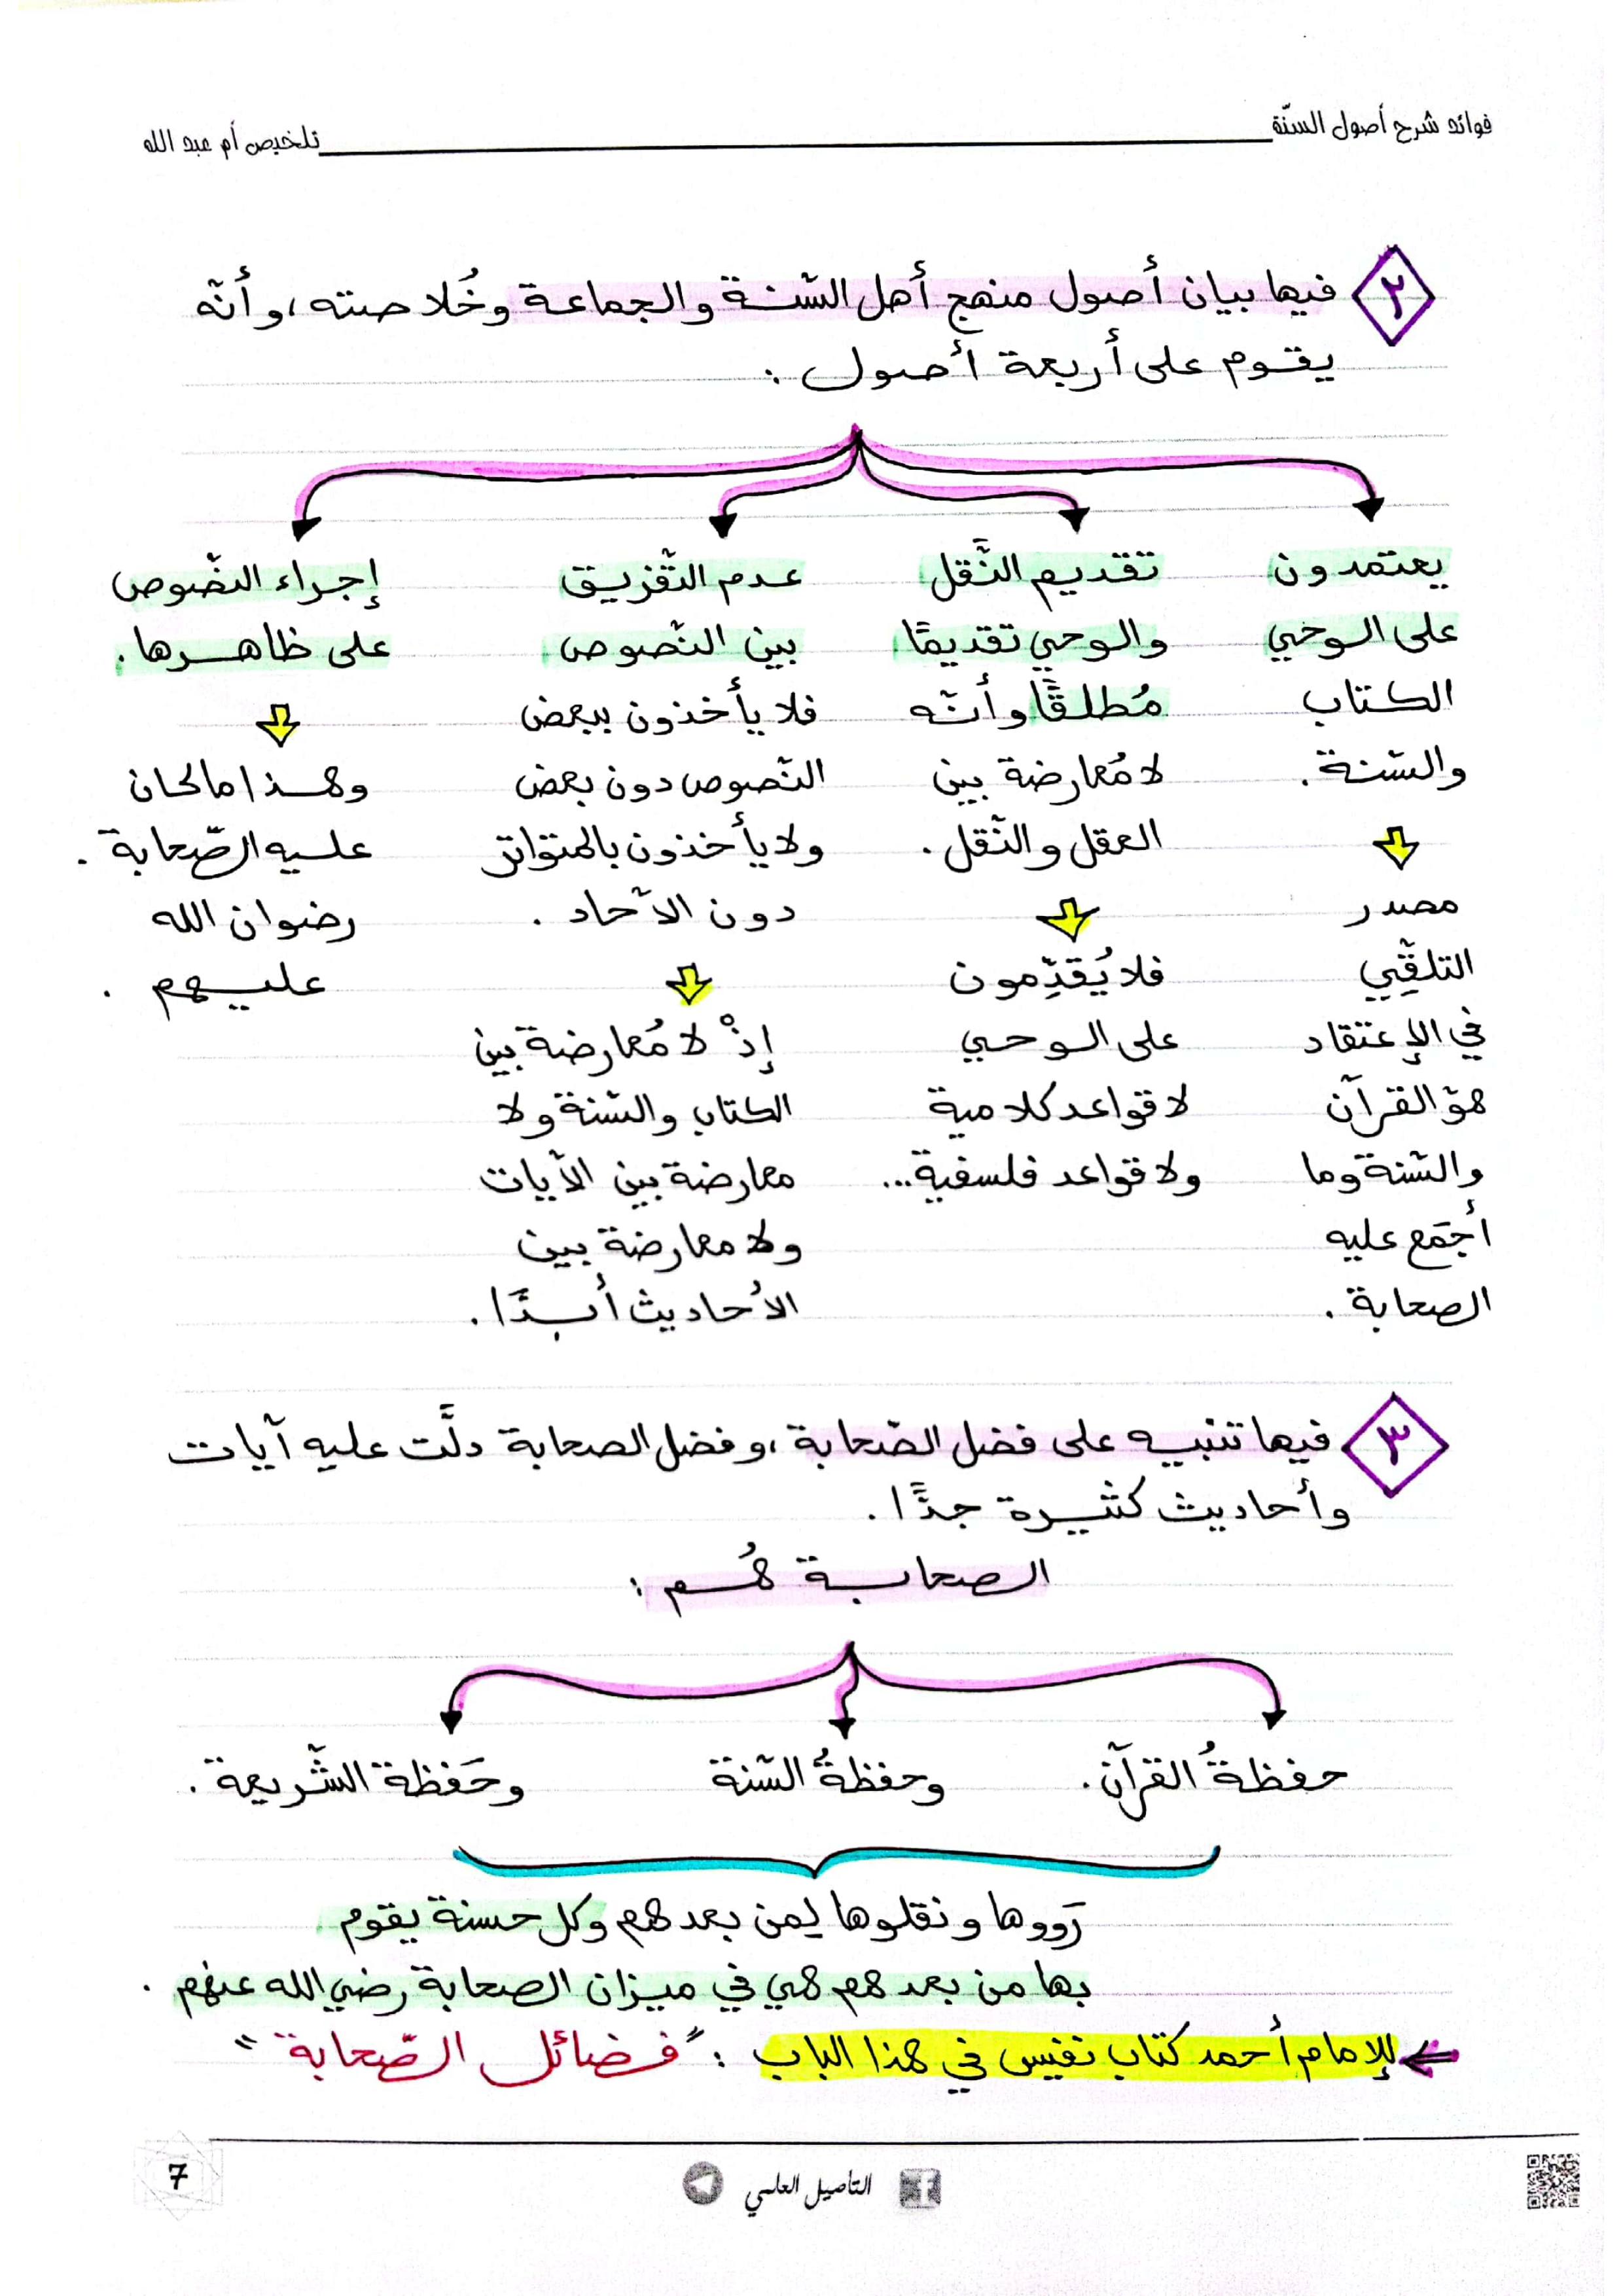 فوائد شرح أصول السنّة
تلخيص أم عبد الله
٢
فيها بيان أصول منهج أهل السّنة والجماعة وخُلاصته، وأنّه
يقوم على أربعة أصول :
يعتمدون
على الوحي
الكتاب
والسّنة.
مصدر
التلقِّي
في الإعتقاد
هو القرآن
والسّنة وما
أجمَع عليه
الصحابة .
تقديم النَّقل
والوحي تقديمًا
مُطلقًا وأنّه
لا مُعارضة بين
العقل والنّقل .
فلا يُقدِّمون
على الوحي
لا قواعد كلامية
ولا قواعد فلسفية...
عدم التّفريق
بين النّصوص
فلا يأخذون ببعض
النّصوص دون بعض
ولا يأخذون بالمتواتر
دون الآحاد .
إذْ لا مُعارضة بين
الكتاب والسّنة ولا
معارضة بين الآيات
ولا معارضة بين
الأحاديث أبدًا .
إجراء النّصوص
على ظاهرها .
وهذا ما كان
عليه الصّحابة .
رضوان الله
عليهم .
٣
فيها تنبيه على فضل الصّحابة، وفضل الصحابة دلَّت عليه آيات
وأحاديث كثيرة جدًّا .
الصحابة هُم :
حفظةُ القرآن .
وحفظةُ السّنة
وحَفظة الشّريعة .
رَووها ونقلوها لِمن بعدهم وكل حسنة يقوم
بها من بعدهم هي في ميزان الصحابة رضي الله عنهم .
للإمام أحمد كتاب نفيس في هذا الباب : "فضائل الصّحابة"
التأصيل العلمي
7